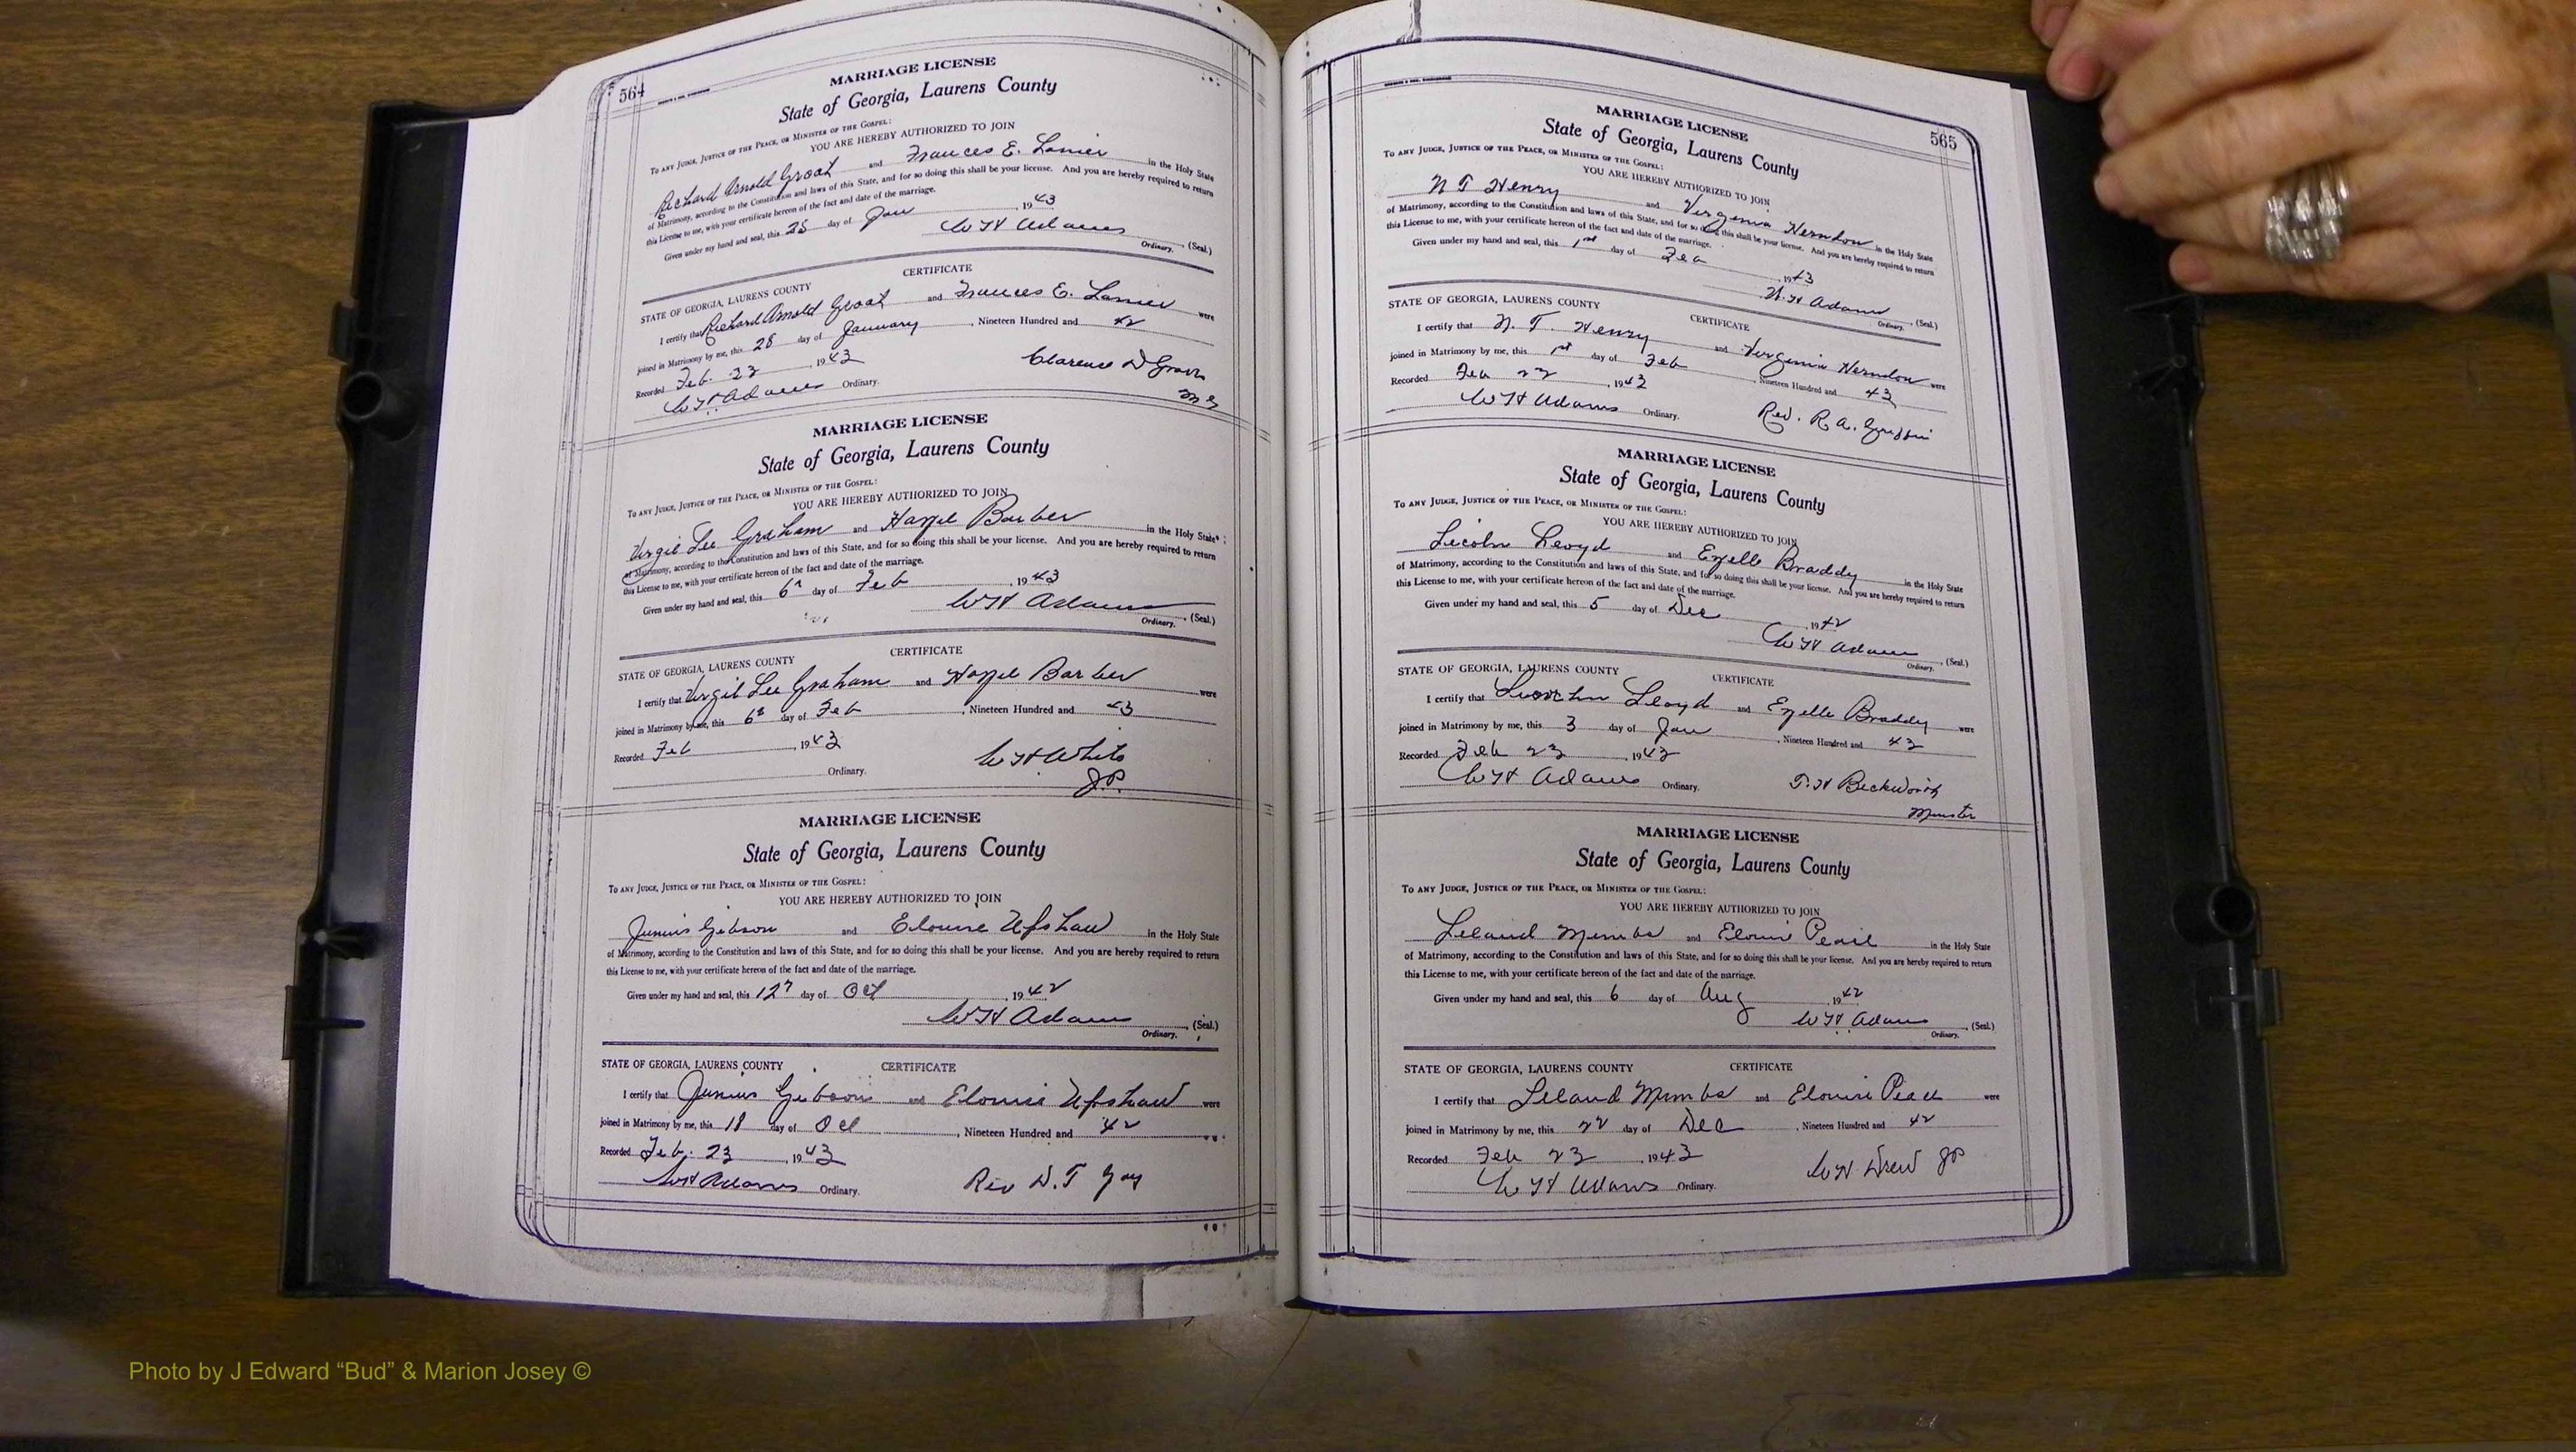 564
MARRIAGE LICENSE
State of Georgia, Laurens County
TO ANY JUDGE, JUSTICE OF THE PEACE, OR MINISTER OF THE GOSPEL:
YOU ARE HEREBY AUTHORIZED TO JOIN
Richard Arnold Groat and Frances E. Lanier in the Holy State
of Matrimony, according to the Constitution and laws of this State, and for so doing this shall be your license. And you are hereby required to return
this License to me, with your certificate hereon of the fact and date of the marriage.
Given under my hand and seal, this 25 day of Jan, 1943
W H Adams (Seal.)
Ordinary.
CERTIFICATE
STATE OF GEORGIA, LAURENS COUNTY
I certify that Richard Arnold Groat and Frances E. Lanier were
joined in Matrimony by me, this 28 day of January, Nineteen Hundred and 42
Recorded Feb. 23, 1943
Clarence D
W H Adams Ordinary.
MARRIAGE LICENSE
State of Georgia, Laurens County
TO ANY JUDGE, JUSTICE OF THE PEACE, OR MINISTER OF THE GOSPEL:
YOU ARE HEREBY AUTHORIZED TO JOIN
Virgil Lee Graham and Hazel Barber in the Holy State
of Matrimony, according to the Constitution and laws of this State, and for so doing this shall be your license. And you are hereby required to return
this License to me, with your certificate hereon of the fact and date of the marriage.
Given under my hand and seal, this 6 day of Feb, 1943
W H Adams (Seal.)
Ordinary.
CERTIFICATE
STATE OF GEORGIA, LAURENS COUNTY
I certify that Virgil Lee Graham and Hazel Barber were
joined in Matrimony by me, this 6 day of Feb, Nineteen Hundred and 43
Recorded Feb, 1943
W H White
Ordinary.
J.P.
MARRIAGE LICENSE
State of Georgia, Laurens County
TO ANY JUDGE, JUSTICE OF THE PEACE, OR MINISTER OF THE GOSPEL:
YOU ARE HEREBY AUTHORIZED TO JOIN
Junius Gibson and Elouise Upshaw in the Holy State
of Matrimony, according to the Constitution and laws of this State, and for so doing this shall be your license. And you are hereby required to return
this License to me, with your certificate hereon of the fact and date of the marriage.
Given under my hand and seal, this 12 day of Oct, 1942
W H Adams (Seal.)
Ordinary.
STATE OF GEORGIA, LAURENS COUNTY CERTIFICATE
I certify that Junius Gibson and Elouise Upshaw were
joined in Matrimony by me, this 18 day of Oct, Nineteen Hundred and 42
Recorded Feb. 23, 1943
W H Adams Ordinary.
Rev D. T
565
MARRIAGE LICENSE
State of Georgia, Laurens County
TO ANY JUDGE, JUSTICE OF THE PEACE, OR MINISTER OF THE GOSPEL:
YOU ARE HEREBY AUTHORIZED TO JOIN
N T Henry and Virginia Herndon in the Holy State
of Matrimony, according to the Constitution and laws of this State, and for so doing this shall be your license. And you are hereby required to return
this License to me, with your certificate hereon of the fact and date of the marriage.
Given under my hand and seal, this 1st day of Feb, 1943
W. H Adams (Seal.)
Ordinary.
STATE OF GEORGIA, LAURENS COUNTY CERTIFICATE
I certify that N. T. Henry and Virginia Herndon were
joined in Matrimony by me, this 1st day of Feb, Nineteen Hundred and 43
Recorded Feb 23, 1943
W H Adams Ordinary.
Rev. R. A. Griffin
MARRIAGE LICENSE
State of Georgia, Laurens County
TO ANY JUDGE, JUSTICE OF THE PEACE, OR MINISTER OF THE GOSPEL:
YOU ARE HEREBY AUTHORIZED TO JOIN
Licoln Lloyd and Ezelle Braddy in the Holy State
of Matrimony, according to the Constitution and laws of this State, and for so doing this shall be your license. And you are hereby required to return
this License to me, with your certificate hereon of the fact and date of the marriage.
Given under my hand and seal, this 5 day of Dec, 1942
W H Adams (Seal.)
Ordinary.
STATE OF GEORGIA, LAURENS COUNTY CERTIFICATE
I certify that Lloyd and Ezelle Braddy were
joined in Matrimony by me, this 3 day of Jan, Nineteen Hundred and 43
Recorded Feb 23, 1943
W H Adams Ordinary.
T. H Beckworth
Minster
MARRIAGE LICENSE
State of Georgia, Laurens County
TO ANY JUDGE, JUSTICE OF THE PEACE, OR MINISTER OF THE GOSPEL:
YOU ARE HEREBY AUTHORIZED TO JOIN
Leland Mimbs and Elouise in the Holy State
of Matrimony, according to the Constitution and laws of this State, and for so doing this shall be your license. And you are hereby required to return
this License to me, with your certificate hereon of the fact and date of the marriage.
Given under my hand and seal, this 6 day of Aug, 1942
W H Adams (Seal.)
Ordinary.
STATE OF GEORGIA, LAURENS COUNTY CERTIFICATE
I certify that Leland Mimbs and Elouise were
joined in Matrimony by me, this 22 day of Dec, Nineteen Hundred and 42
Recorded Feb 23, 1943
W H Adams Ordinary.
W H Drew JP
Photo by J Edward “Bud” & Marion Josey ©